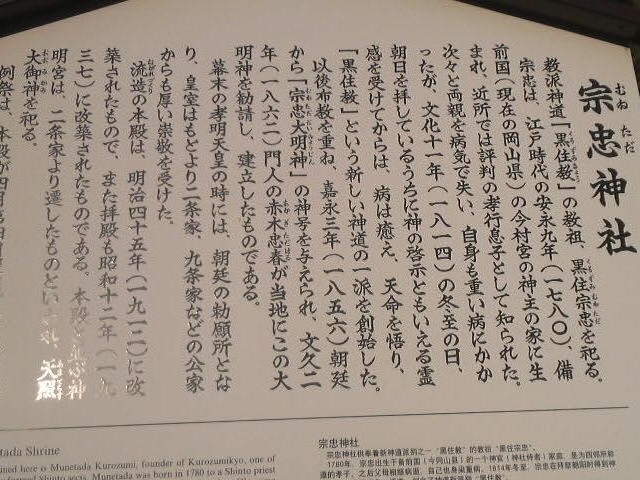 宗忠神社
むねただ
教派神道「黒住教」の教祖、黒住宗忠を祀る。
くろずみきょう
くろずみむねただ
宗忠は、江戸時代の安永九年（一七八〇）、備
前国（現在の岡山県）の今村宮の神主の家に生
まれ、近所では評判の孝行息子として知られた。
次々と両親を病気で失い、自身も重い病にかか
ったが、文化十一年（一八一四）の冬至の日、
朝日を拝しているうちに神の啓示ともいえる霊
感を受けてからは、病は癒え、天命を悟り、
「黒住教」という新しい神道の一派を創始した。
以後布教を重ね、嘉永三年（一八五六）朝廷
から「宗忠大明神」の神号を与えられ、文久二
むねただだいみょうじん
年（一八六二）門人の赤木忠春が当地にこの大
あかぎただはる
明神を勧請し、建立したものである。
幕末の孝明天皇の時には、朝廷の勅願所とな
り、皇室はもとより二条家、九条家などの公家
からも厚い崇敬を受けた。
流造の本殿は、明治四十五年（一九一二）に改
ながれづくり
築されたもので、また拝殿も昭和十二年（一九
三七）に改築されたものである。本殿と並ぶ神
明宮は、二条家より遷したものといわれ、天照
大御神を祀る。
おおみかみ
例祭は、本殿が四月
tada Shrine
ined here is Munetada Kurozumi, founder of Kurozumikyo, one of
Shinto sects. Munetada was born in 1780 to a Shinto priest
宗忠神社
宗忠神社供奉着新神道派别之一"黑住教"的教祖"黑住宗忠"。
1780年，宗忠出生于备前国（今冈山县）的一个神官（神社侍者）家庭，是为四邻所称
道的孝子。之后父母相继病逝，自己也身染重病。1814年冬至，宗忠在拜祭朝阳时得到神